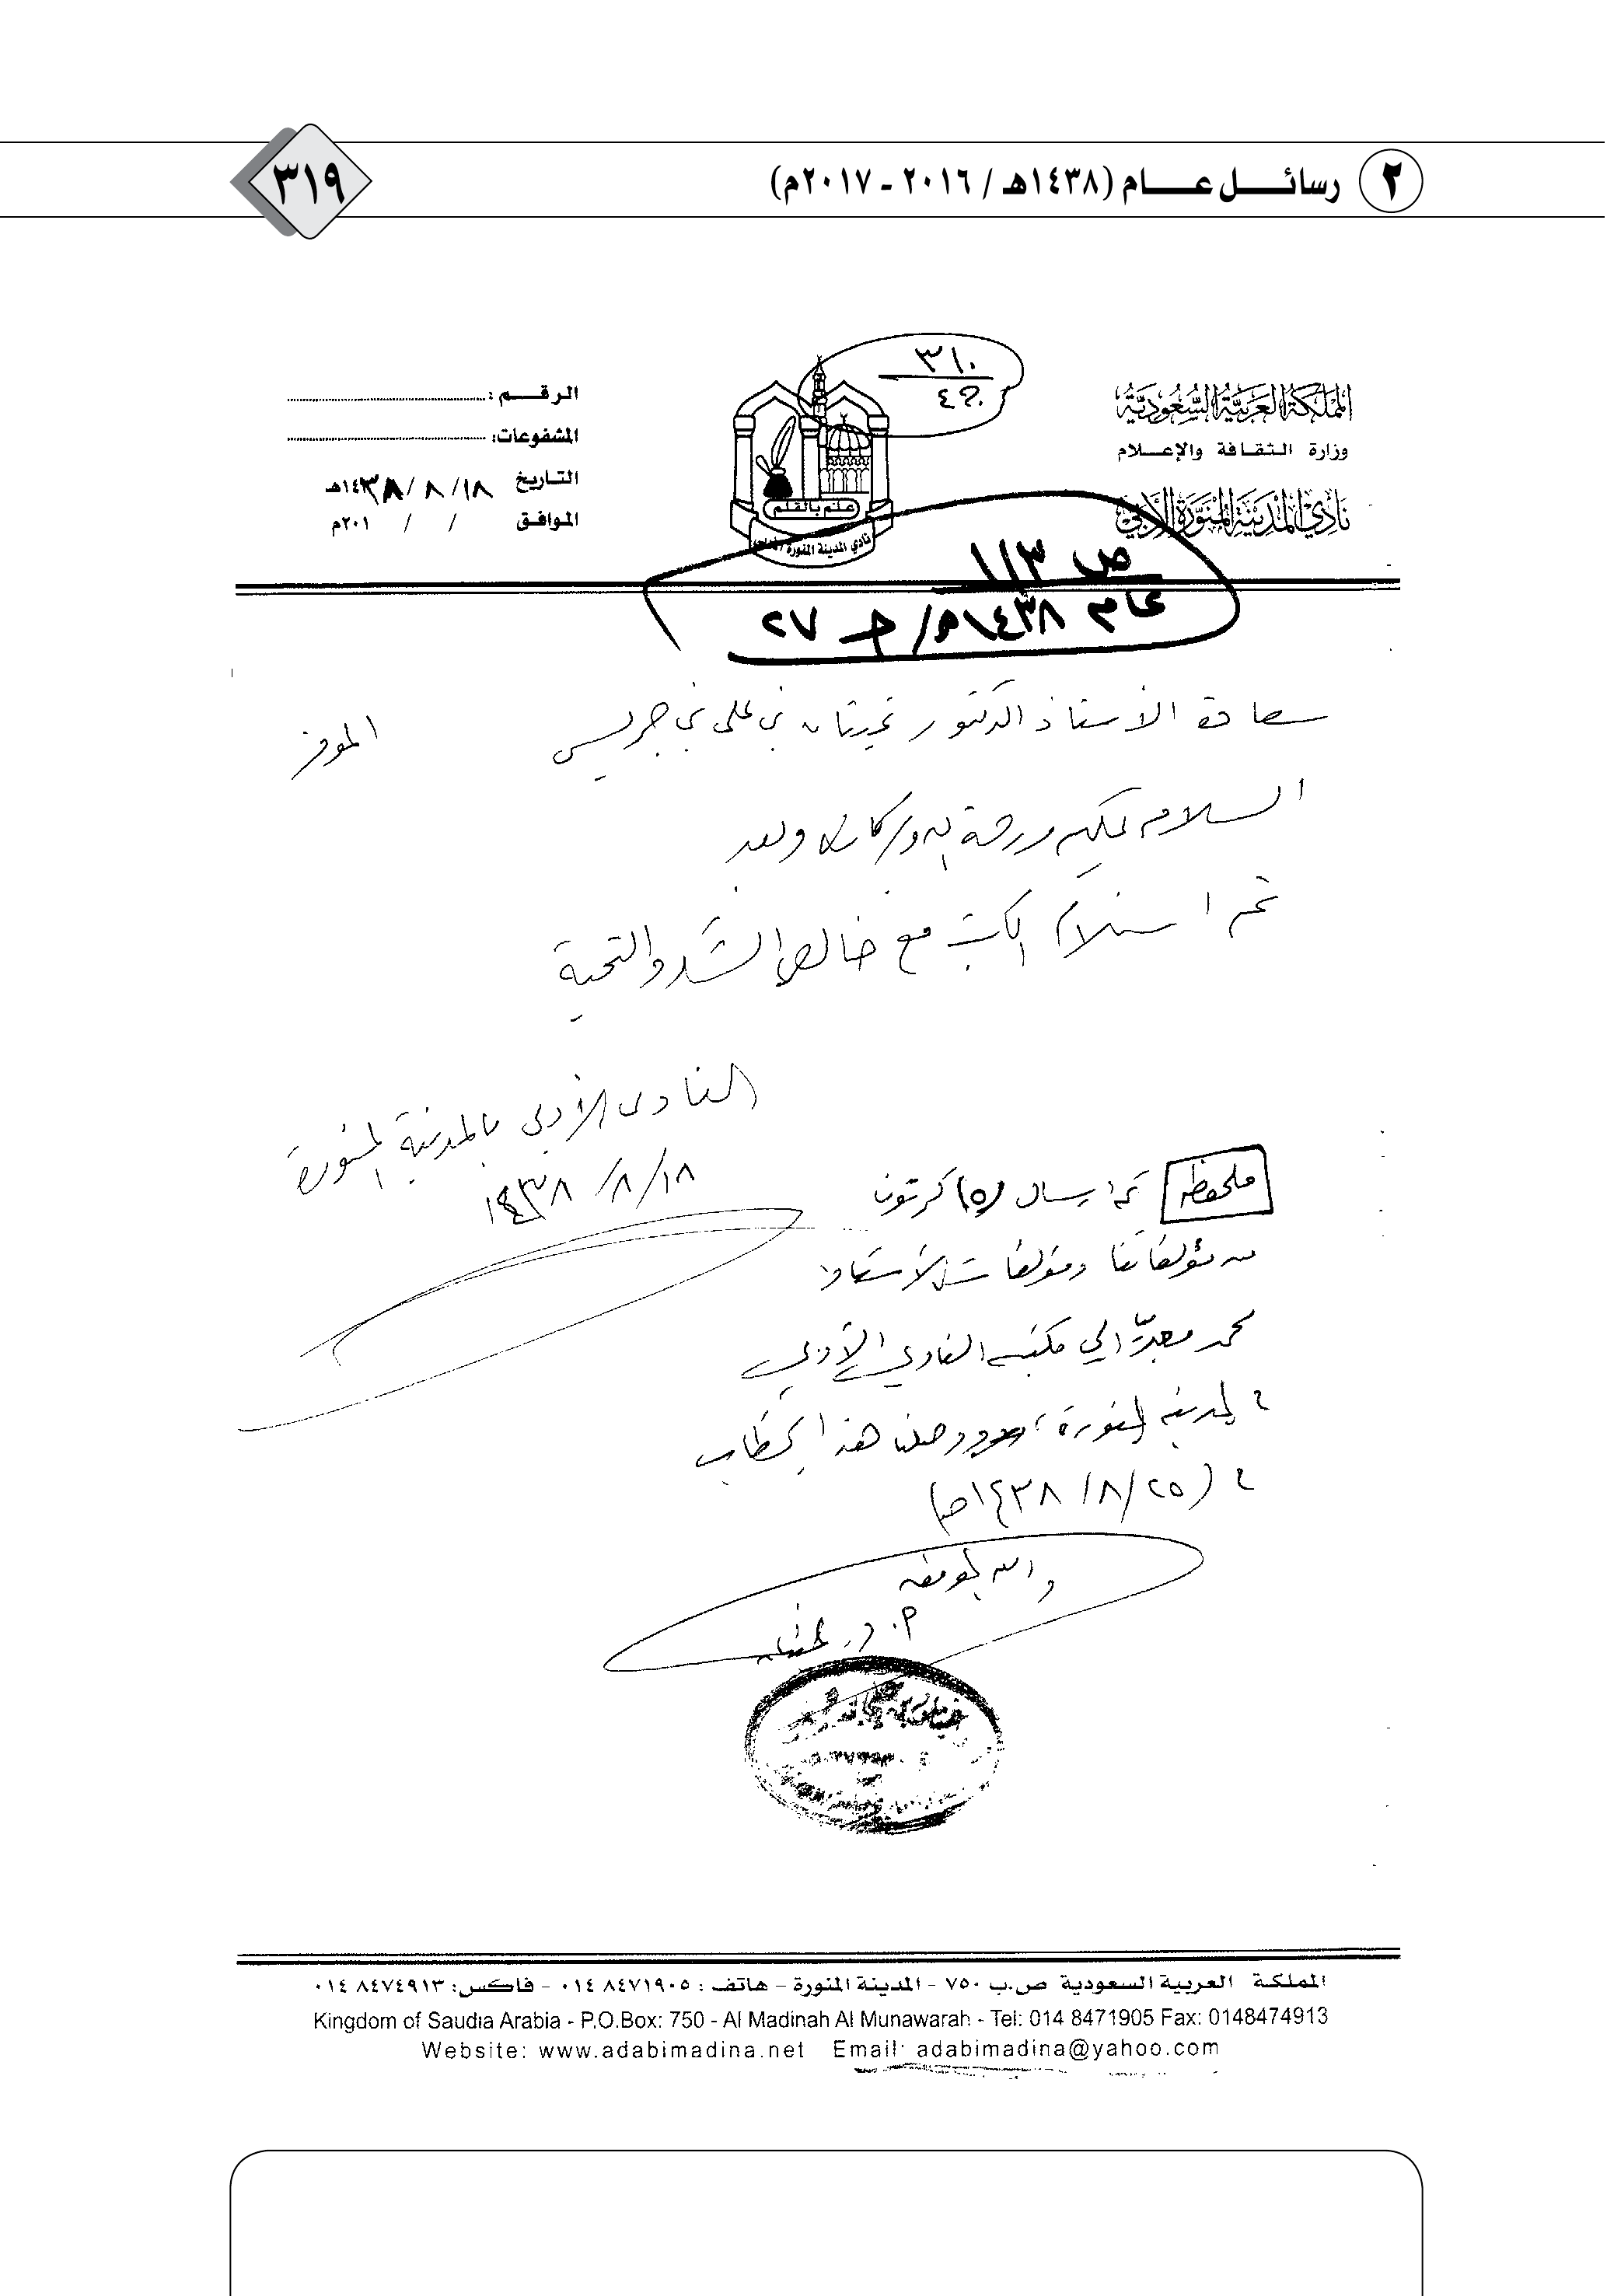 ٢ رسائـــل عـــام (١٤٣٨هـ / ٢٠١٦ - ٢٠١٧م)
٣١٩
المملكة العربية السعودية
وزارة الثقافة والإعلام
نادي المدينة المنورة الأدبي
٣١٠
علم بالقلم
نادي المدينة المنورة
الرقـــم :
المشفوعات:
التاريخ ١٨/ ٨ /١٤٣٨هـ
الموافق / / ٢٠١م
ص ١١٣
عام ١٤٣٨هـ/ جـ ٢٧
سعادة الأستاذ الدكتور غيثان بن علي بن جريس الموقر
السلام عليكم ورحمة الله وبركاته وبعد
تم استلام الكتب مع خالص الشكر والتحية
النادي الأدبي بالمدينة المنورة
١٨/ ٨/ ١٤٣٨
ملحوظة تم ارسال (٥) كرتون
من مؤلفاتنا ومؤلفات الأستاذ
محمد معبر الي مكتبة النادي الأدبي
بالمدينة المنورة ، ووصلنا هذا الخطاب
في (٢٥/ ٨/ ١٤٣٨هـ)
والله الموفق
أ. د. غيثان
المملكة العربية السعودية ص.ب ٧٥٠ - المدينة المنورة - هاتف : ٨٤٧١٩٠٥ ٠١٤ - فاكس: ٨٤٧٤٩١٣ ٠١٤
Kingdom of Saudia Arabia - P.O.Box: 750 - Al Madinah Al Munawarah - Tel: 014 8471905 Fax: 0148474913
Website: www.adabimadina.net Email: adabimadina@yahoo.com